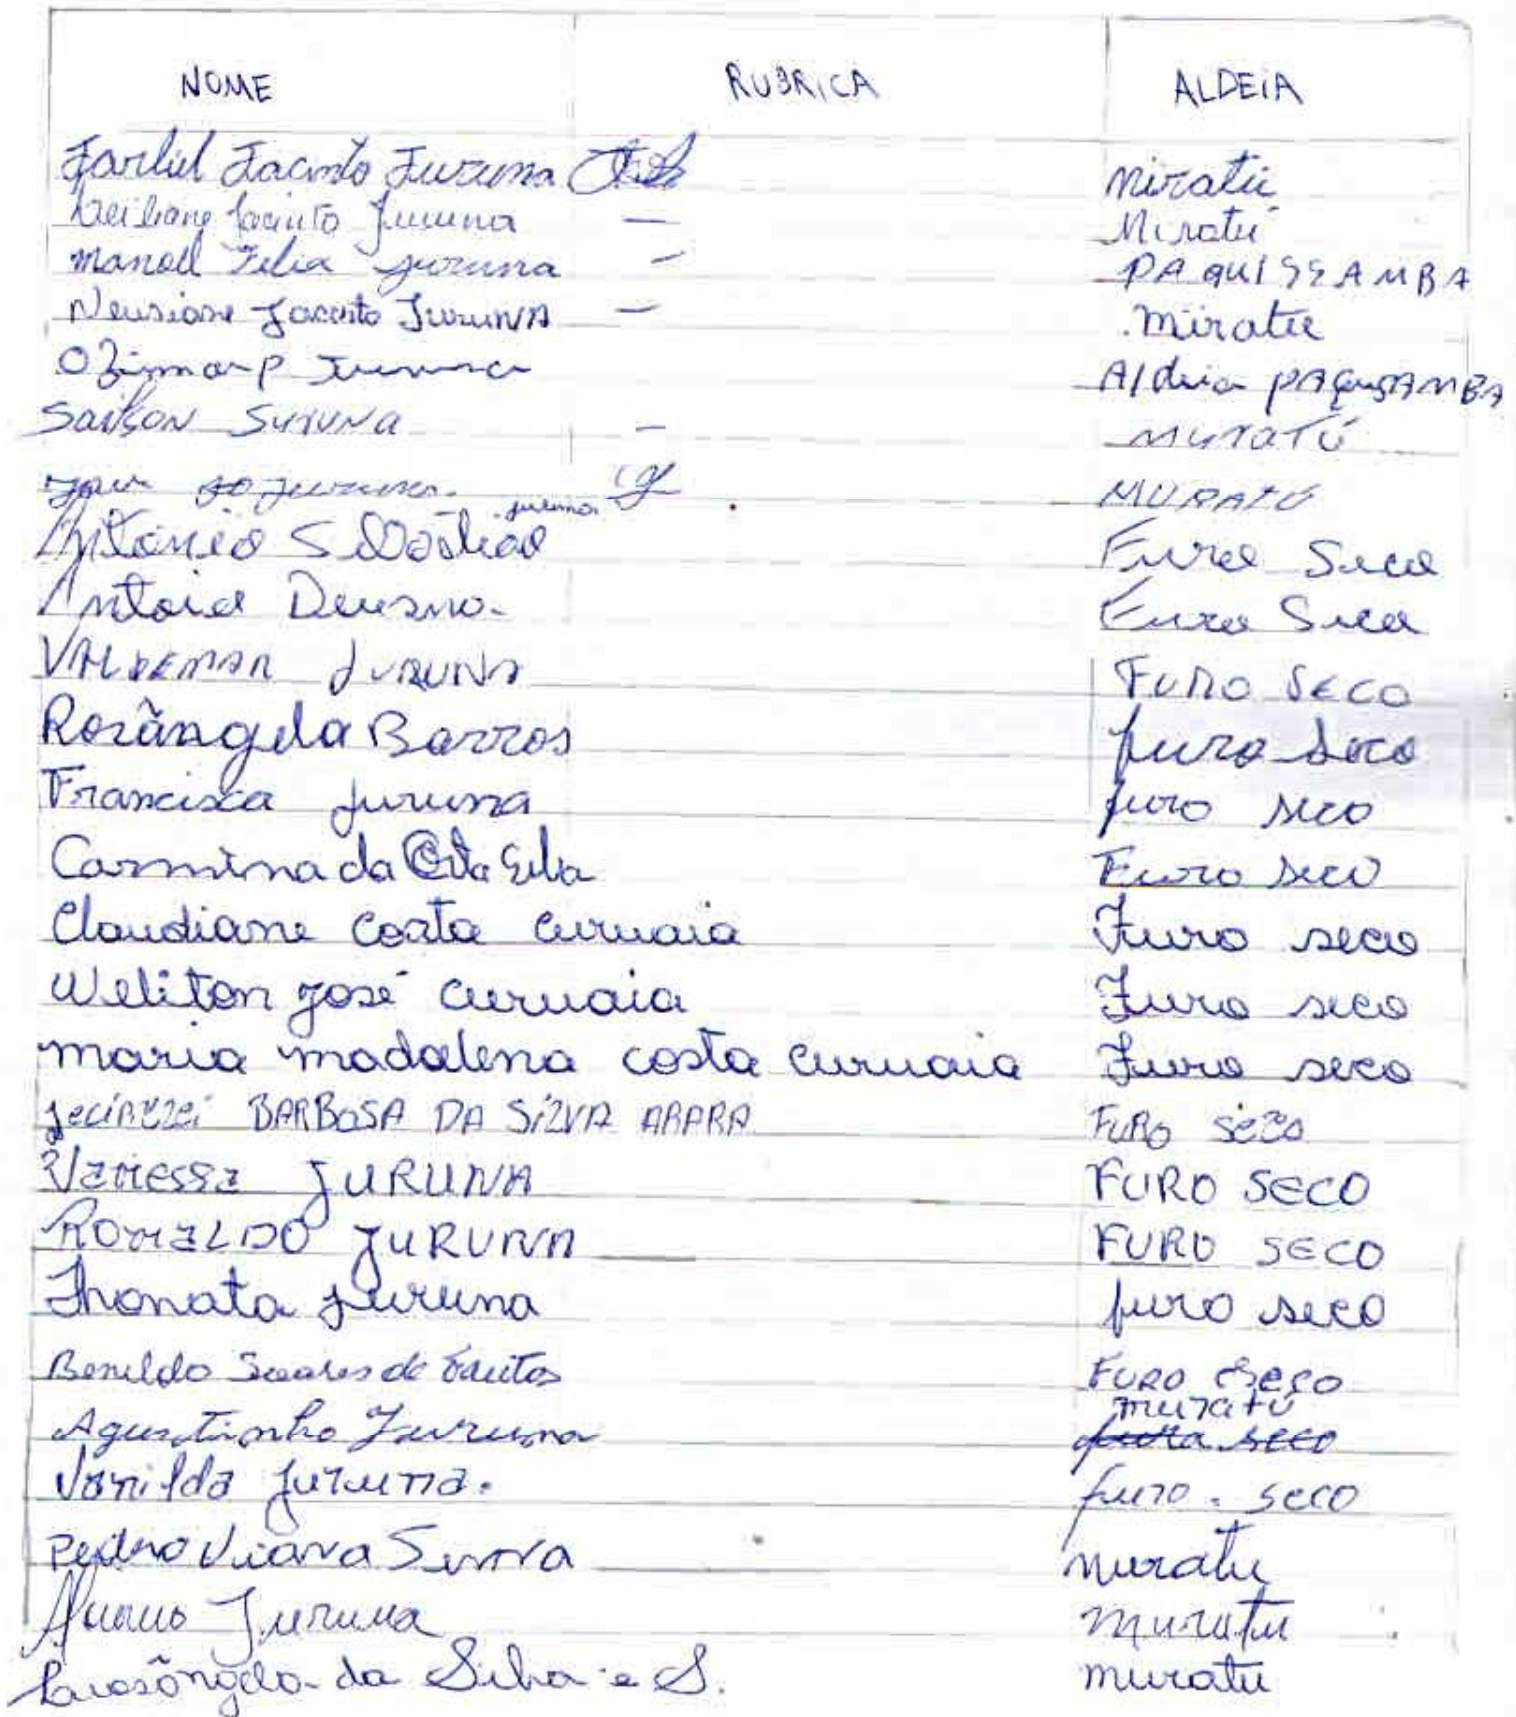 NOME RUBRICA ALDEIA
Jacinto Juruna Miratu
Jacinto Juruna — Miratu
Manoel Felix Juruna — PAQUISSAMBA
Neusiane Jacinto Juruna — Miratu
Ozimar P Juruna Aldeia PAQuSAMBA
Sailson Juruna — MURATÚ
Juruna MURATÚ
juruna
Antonio Sebastião Furo Seco
Antoio Furo Seco
VALDEMAR JURUNA FURO SECO
Rozângela Barros furo seco
Francisca Juruna furo seco
Carmina da Costa Silva Furo seco
Claudiane Costa Curuaia Furo seco
Weliton José Curuaia Furo seco
maria madalena costa Curuaia Furo seco
BARBOSA DA SILVA ARARA FURO SECO
Vanessa JURUNA FURO SECO
RONALDO JURUNA FURO SECO
Jhonata Juruna furo seco
Benildo Soares de Furo Seco
muratú
Agustinho Juruna furo seco
Vanilda juruna. furo. seco
Pedro Viana muratu
Juruna muratu
da Silva e S. muratu